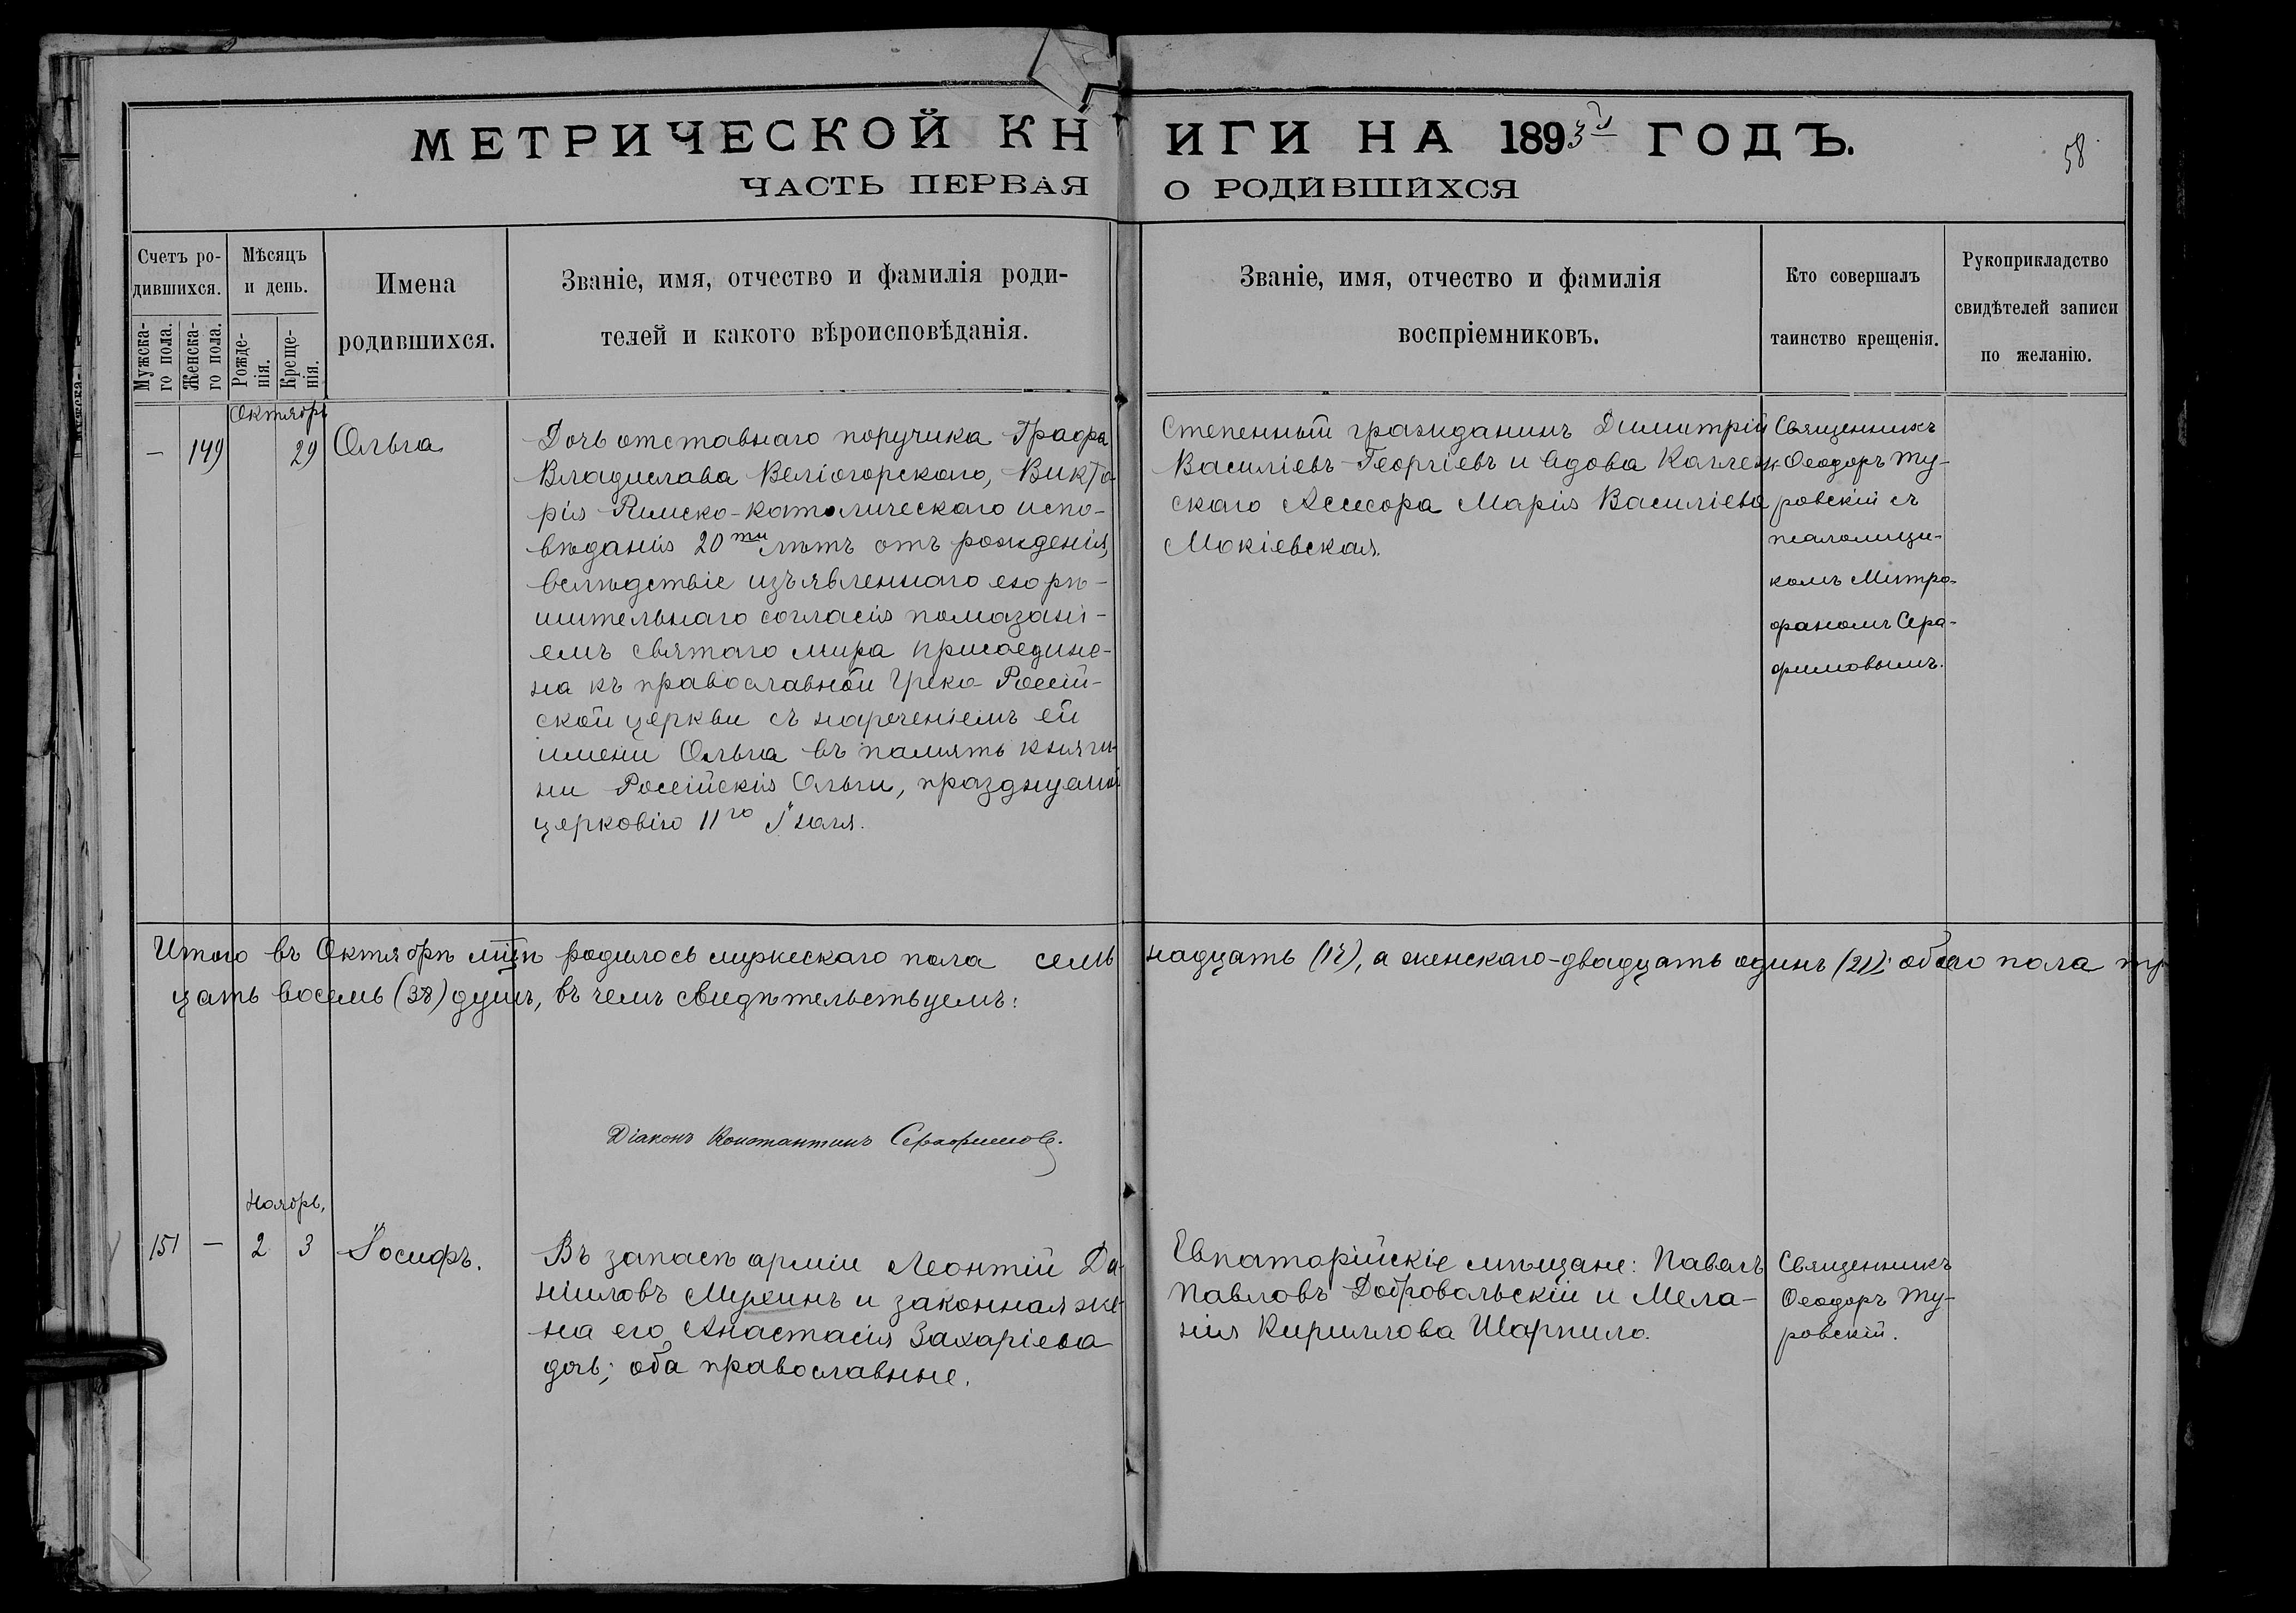 МЕТРИЧЕСКОЙ КНИГИ НА 1893й ГОДЪ.
58
ЧАСТЬ ПЕРВАЯ О РОДИВШИХСЯ
Счетъ ро-
дившихся.
Мужска-
го пола.
Женска-
го пола.
Мѣсяцъ
и день.
Рожде-
нія.
Креще-
нія.
Имена
родившихся.
Званіе, имя, отчество и фамилія роди-
телей и какого вѣроисповѣданія.
Званіе, имя, отчество и фамилія
воспріемниковъ.
Кто совершалъ
таинство крещенія.
Рукоприкладство
свидѣтелей записи
по желанію.
Октябрь
— 149 29 Ольга
Дочь отставнаго поручика Графа
Владислава Веліогорскаго, Викто-
рія Римско-католическаго испо-
вѣданія 20ти лѣтъ отъ рожденія,
вслѣдствіе изъявленнаго ею рѣ-
шительнаго согласія помазані-
емъ святаго мира присоедине-
на къ православной Греко-Россій-
ской церкви съ нареченіемъ ей
имени Ольга въ память княги-
ни Россійскія Ольги, празднуемой
церковію 11го Іюля.
Степенный гражданинъ Димитрій
Василіевъ Георгіевъ и вдова Коллеж-
скаго Ассесора Марія Василіева
Мокіевская.
Священникъ
Ѳеодоръ Ту-
ровскій съ
псаломщи-
комъ Митро-
фаномъ Сера-
фимовымъ.
Итого въ Октябрѣ мцѣ родилось мужескаго пола семнадцать (17), а женскаго-двадцать одинъ (21); обоего пола три-
цать восемь (38) душъ, въ чемъ свидѣтельствуемъ:
Діаконъ Константинъ Серафимовъ.
Ноябрь,
151 — 2 3 Іосифъ.
Въ запасѣ арміи Леонтій Да-
ніиловъ Мухинъ и законная же-
на его Анастасія Захаріева
дочь; оба православные.
Евпаторійскіе мѣщане: Павелъ
Павловъ Добровольскій и Мела-
нія Кириллова Шарпило.
Священникъ
Ѳеодоръ Ту-
ровскій.